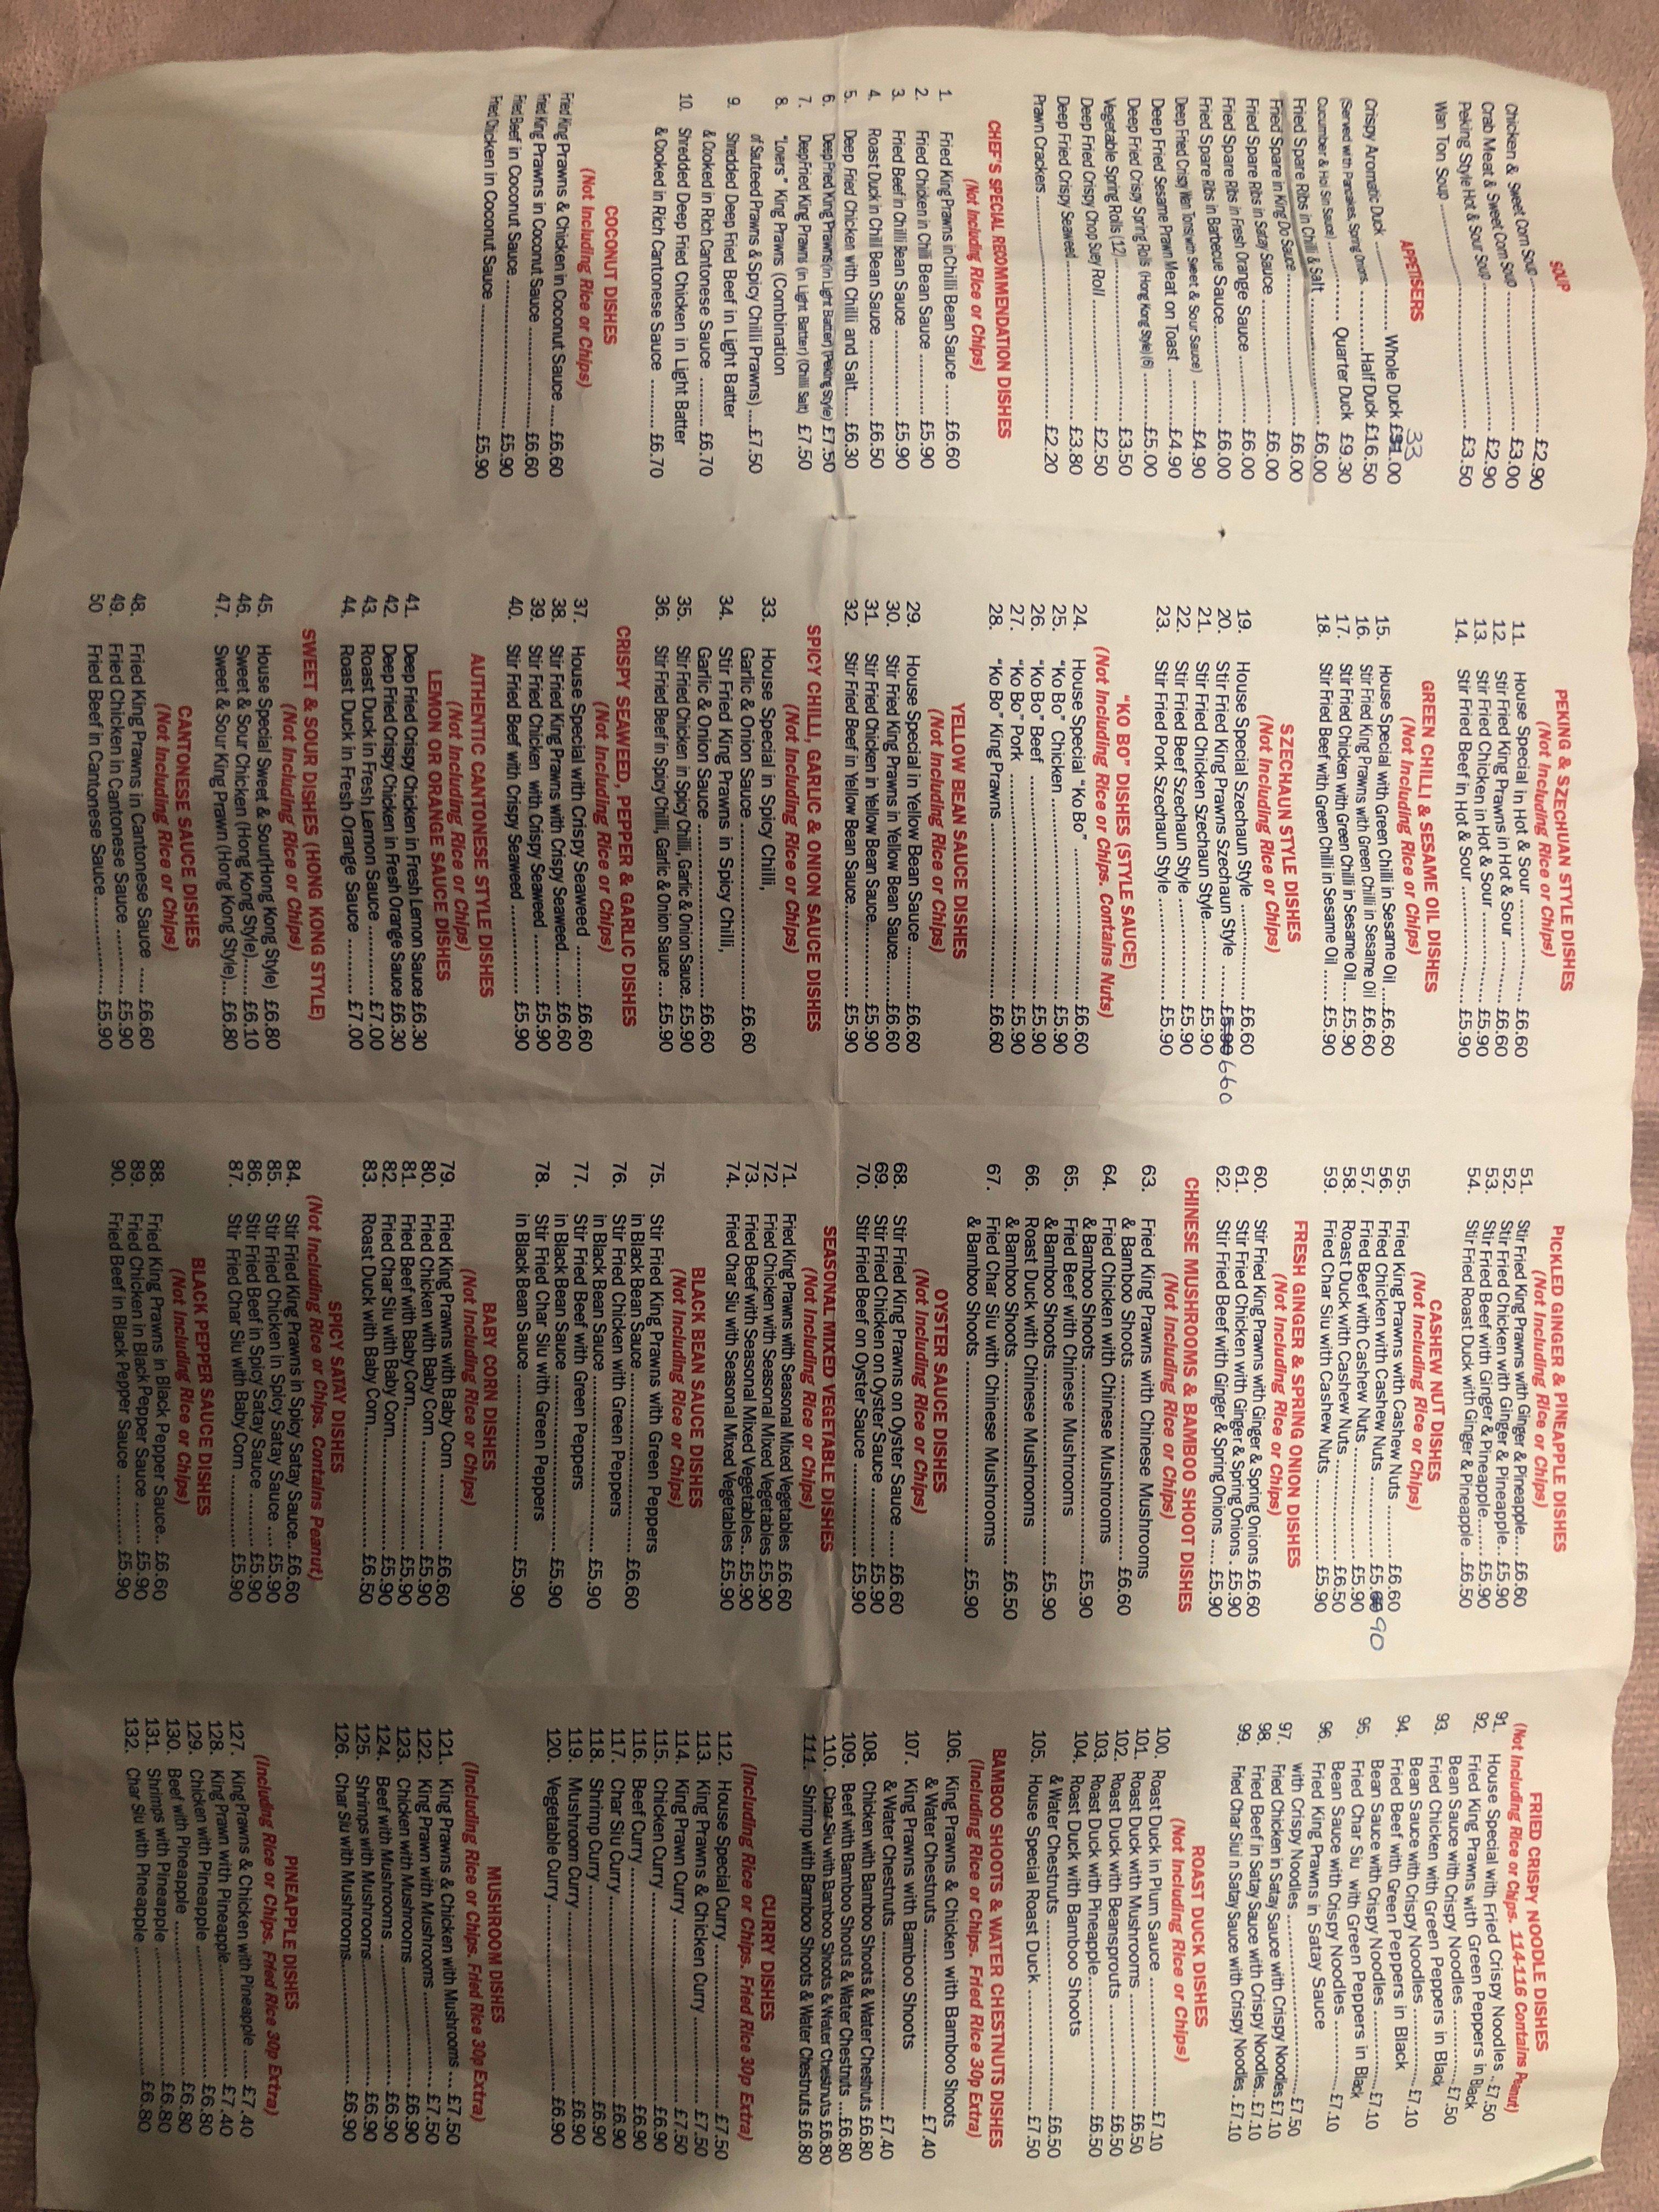 SOUP
Chicken & Sweet Corn Soup ........ £2.90
Crab Meat & Sweet Corn Soup ........ £3.00
Peking Style Hot & Sour Soup ........ £2.90
Wan Ton Soup ........ £3.50
APPETISERS
33
Crispy Aromatic Duck ........ Whole Duck £31.00
(Served with Pancakes, Spring Onions, ........ Half Duck £16.50
Cucumber & Hoi Sin Sauce) ........ Quarter Duck £9.30
Fried Spare Ribs in Chilli & Salt ........ £6.00
Fried Spare in King Do Sauce ........ £6.00
Fried Spare Ribs in Satay Sauce ........ £6.00
Fried Spare Ribs in Fresh Orange Sauce ........ £6.00
Fried Spare Ribs in Barbecue Sauce ........ £6.00
Deep Fried Crispy Wan Tons(with Sweet & Sour Sauce) ........ £4.90
Deep Fried Sesame Prawn Meat on Toast ........ £4.90
Deep Fried Crispy Spring Rolls (Hong Kong Style)(6) ........ £5.00
Vegetable Spring Rolls (12) ........ £3.50
Deep Fried Crispy Chop Suey Roll ........ £2.50
Deep Fried Crispy Seaweed ........ £3.80
Prawn Crackers ........ £2.20
CHEF'S SPECIAL RECOMMENDATION DISHES
(Not Including Rice or Chips)
1. Fried King Prawns in Chilli Bean Sauce ...... £6.60
2. Fried Chicken in Chilli Bean Sauce ........ £5.90
3. Fried Beef in Chilli Bean Sauce ........ £5.90
4. Roast Duck in Chill Bean Sauce ........ £6.50
5. Deep Fried Chicken with Chilli and Salt...... £6.30
6. Deep Fried King Prawns(in Light Batter) (Peking Style) £7.50
7. Deep Fried King Prawns (in Light Batter) (Chilli Salt) £7.50
8. "Lovers" King Prawns (Combination
of Sauteed Prawns & Spicy Chilli Prawns)....£7.50
9. Shredded Deep Fried Beef in Light Batter
& Cooked in Rich Cantonese Sauce ........ £6.70
10. Shredded Deep Fried Chicken in Light Batter
& Cooked in Rich Cantonese Sauce ........ £6.70
COCONUT DISHES
(Not Including Rice or Chips)
Fried King Prawns & Chicken in Coconut Sauce .... £6.60
Fried King Prawns in Coconut Sauce ........ £6.60
Fried Beef in Coconut Sauce ........ £5.90
Fried Chicken in Coconut Sauce ........ £5.90
PEKING & SZECHUAN STYLE DISHES
(Not Including Rice or Chips)
11. House Special in Hot & Sour ........ £6.60
12. Stir Fried King Prawns in Hot & Sour ........ £6.60
13. Stir Fried Chicken in Hot & Sour ........ £5.90
14. Stir Fried Beef in Hot & Sour ........ £5.90
GREEN CHILLI & SESAME OIL DISHES
(Not Including Rice or Chips)
15. House Special with Green Chilli in Sesame Oil ....£6.60
16. Stir Fried King Prawns with Green Chilli in Sesame Oil £6.60
17. Stir Fried Chicken with Green Chilli in Sesame Oil....£5.90
18. Stir Fried Beef with Green Chilli in Sesame Oil .... £5.90
SZECHAUN STYLE DISHES
(Not Including Rice or Chips)
19. House Special Szechaun Style ........ £6.60
20. Stir Fried King Prawns Szechaun Style ......£5.90 660
21. Stir Fried Chicken Szechaun Style........ £5.90
22. Stir Fried Beef Szechaun Style ........ £5.90
23. Stir Fried Pork Szechaun Style ........ £5.90
"KO BO" DISHES (STYLE SAUCE)
(Not Including Rice or Chips. Contains Nuts)
24. House Special "Ko Bo" ........ £6.60
25. "Ko Bo" Chicken ........ £5.90
26. "Ko Bo" Beef ........ £5.90
27. "Ko Bo" Pork ........ £5.90
28. "Ko Bo" King Prawns ........ £6.60
YELLOW BEAN SAUCE DISHES
(Not Including Rice or Chips)
29. House Special in Yellow Bean Sauce ........ £6.60
30. Stir Fried King Prawns in Yellow Bean Sauce......£6.60
31. Stir Fried Chicken in Yellow Bean Sauce........ £5.90
32. Stir Fried Beef in Yellow Bean Sauce........ £5.90
SPICY CHILLI, GARLIC & ONION SAUCE DISHES
(Not Including Rice or Chips)
33. House Special in Spicy Chilli,
Garlic & Onion Sauce ........ £6.60
34. Stir Fried King Prawns in Spicy Chilli,
Garlic & Onion Sauce ........ £6.60
35. Stir Fried Chicken in Spicy Chilli, Garlic & Onion Sauce. £5.90
36. Stir Fried Beef in Spicy Chilli, Garlic & Onion Sauce ... £5.90
CRISPY SEAWEED, PEPPER & GARLIC DISHES
(Not Including Rice or Chips)
37. House Special with Crispy Seaweed ........ £6.60
38. Stir Fried King Prawns with Crispy Seaweed...... £6.60
39. Stir Fried Chicken with Crispy Seaweed ........ £5.90
40. Stir Fried Beef with Crispy Seaweed ........ £5.90
AUTHENTIC CANTONESE STYLE DISHES
(Not Including Rice or Chips)
LEMON OR ORANGE SAUCE DISHES
41. Deep Fried Crispy Chicken in Fresh Lemon Sauce £6.30
42. Deep Fried Crispy Chicken in Fresh Orange Sauce £6.30
43. Roast Duck in Fresh Lemon Sauce ........ £7.00
44. Roast Duck in Fresh Orange Sauce ........ £7.00
SWEET & SOUR DISHES (HONG KONG STYLE)
(Not Including Rice or Chips)
45. House Special Sweet & Sour(Hong Kong Style) £6.80
46. Sweet & Sour Chicken (Hong Kong Style)...... £6.10
47. Sweet & Sour King Prawn (Hong Kong Style)... £6.80
CANTONESE SAUCE DISHES
(Not Including Rice or Chips)
48. Fried King Prawns in Cantonese Sauce ..... £6.60
49. Fried Chicken in Cantonese Sauce ........ £5.90
50 Fried Beef in Cantonese Sauce........ £5.90
PICKLED GINGER & PINEAPPLE DISHES
(Not Including Rice or Chips)
51. Stir Fried King Prawns with Ginger & Pineapple.... £6.60
52. Stir Fried Chicken with Ginger & Pineapple... £5.90
53. Stir Fried Beef with Ginger & Pineapple...... £5.90
54. Stir Fried Roast Duck with Ginger & Pineapple ..£6.50
CASHEW NUT DISHES
(Not Including Rice or Chips)
55. Fried King Prawns with Cashew Nuts ........ £6.60
56. Fried Chicken with Cashew Nuts ........ £5.60 90
57. Fried Beef with Cashew Nuts ........ £5.90
58. Roast Duck with Cashew Nuts ........ £6.50
59. Fried Char Siu with Cashew Nuts ........ £5.90
FRESH GINGER & SPRING ONION DISHES
(Not Including Rice or Chips)
60. Stir Fried King Prawns with Ginger & Spring Onions £6.60
61. Stir Fried Chicken with Ginger & Spring Onions . £5.90
62. Stir Fried Beef with Ginger & Spring Onions ..... £5.90
CHINESE MUSHROOMS & BAMBOO SHOOT DISHES
(Not Including Rice or Chips)
63. Fried King Prawns with Chinese Mushrooms
& Bamboo Shoots ........ £6.60
64. Fried Chicken with Chinese Mushrooms
& Bamboo Shoots ........ £5.90
65. Fried Beef with Chinese Mushrooms
& Bamboo Shoots ........ £5.90
66. Roast Duck with Chinese Mushrooms
& Bamboo Shoots........ £6.50
67. Fried Char Siu with Chinese Mushrooms
& Bamboo Shoots ........ £5.90
OYSTER SAUCE DISHES
(Not Including Rice or Chips)
68. Stir Fried King Prawns on Oyster Sauce ..... £6.60
69. Stir Fried Chicken on Oyster Sauce ........ £5.90
70. Stir Fried Beef on Oyster Sauce ........ £5.90
SEASONAL MIXED VEGETABLE DISHES
(Not Including Rice or Chips)
71. Fried King Prawns with Seasonal Mixed Vegetables £6.60
72. Fried Chicken with Seasonal Mixed Vegetables £5.90
73. Fried Beef with Seasonal Mixed Vegetables... £5.90
74. Fried Char Siu with Seasonal Mixed Vegetables £5.90
BLACK BEAN SAUCE DISHES
(Not Including Rice or Chips)
75. Stir Fried King Prawns with Green Peppers
in Black Bean Sauce ........ £6.60
76. Stir Fried Chicken with Green Peppers
in Black Bean Sauce ........ £5.90
77. Stir Fried Beef with Green Peppers
in Black Bean Sauce ........ £5.90
78. Stir Fried Char Siu with Green Peppers
in Black Bean Sauce ........ £5.90
BABY CORN DISHES
(Not Including Rice or Chips)
79. Fried King Prawns with Baby Corn ........ £6.60
80. Fried Chicken with Baby Corn ........ £5.90
81. Fried Beef with Baby Corn........ £5.90
82. Fried Char Siu with Baby Corn........ £5.90
83. Roast Duck with Baby Corn........ £6.50
SPICY SATAY DISHES
(Not Including Rice or Chips. Contains Peanut)
84. Stir Fried King Prawns in Spicy Satay Sauce.. £6.60
85. Stir Fried Chicken in Spicy Satay Sauce .... £5.90
86. Stir Fried Beef in Spicy Satay Sauce ........ £5.90
87. Stir Fried Char Siu with Baby Corn ........ £5.90
BLACK PEPPER SAUCE DISHES
(Not Including Rice or Chips)
88. Fried King Prawns in Black Pepper Sauce.. £6.60
89. Fried Chicken in Black Pepper Sauce ........ £5.90
90. Fried Beef in Black Pepper Sauce ........ £5.90
FRIED CRISPY NOODLE DISHES
(Not Including Rice or Chips. 114-116 Contains Peanut)
91. House Special with Fried Crispy Noodles ..£7.50
92. Fried King Prawns with Green Peppers in Black
Bean Sauce with Crispy Noodles ........ £7.50
93. Fried Chicken with Green Peppers in Black
Bean Sauce with Crispy Noodles ........ £7.10
94. Fried Beef with Green Peppers in Black
Bean Sauce with Crispy Noodles ........ £7.10
95. Fried Char Siu with Green Peppers in Black
Bean Sauce with Crispy Noodles ........ £7.10
96. Fried King Prawns in Satay Sauce
with Crispy Noodles ........ £7.50
97. Fried Chicken in Satay Sauce with Crispy Noodles £7.10
98. Fried Beef in Satay Sauce with Crispy Noodles. £7.10
99. Fried Char Siui n Satay Sauce with Crispy Noodles . £7.10
ROAST DUCK DISHES
(Not Including Rice or Chips)
100. Roast Duck in Plum Sauce ........ £7.10
101. Roast Duck with Mushrooms ........ £6.50
102. Roast Duck with Beansprouts ........ £6.50
103. Roast Duck with Pineapple........ £6.50
104. Roast Duck with Bamboo Shoots
& Water Chestnuts ........ £6.50
105. House Special Roast Duck ........ £7.50
BAMBOO SHOOTS & WATER CHESTNUTS DISHES
(Including Rice or Chips. Fried Rice 30p Extra)
106. King Prawns & Chicken with Bamboo Shoots
& Water Chestnuts ........ £7.40
107. King Prawns with Bamboo Shoots
& Water Chestnuts ........ £7.40
108. Chicken with Bamboo Shoots & Water Chestnuts £6.80
109. Beef with Bamboo Shoots & Water Chestnuts ...£6.80
110. Char Siu with Bamboo Shoots & Water Chestnuts £6.80
111. Shrimp with Bamboo Shoots & Water Chestnuts £6.80
CURRY DISHES
(Including Rice or Chips. Fried Rice 30p Extra)
112. House Special Curry ........ £7.50
113. King Prawns & Chicken Curry ........ £7.50
114. King Prawn Curry ........ £7.50
115. Chicken Curry ........ £6.90
116. Beef Curry........ £6.90
117. Char Siu Curry ........ £6.90
118. Shrimp Curry ........ £6.90
119. Mushroom Curry ........ £6.90
120. Vegetable Curry ........ £6.90
MUSHROOM DISHES
(Including Rice or Chips. Fried Rice 30p Extra)
121. King Prawns & Chicken with Mushrooms .... £7.50
122. King Prawn with Mushrooms ........ £7.50
123. Chicken with Mushrooms ........ £6.90
124. Beef with Mushrooms ........ £6.90
125. Shrimps with Mushrooms........ £6.90
126. Char Siu with Mushrooms........ £6.90
PINEAPPLE DISHES
(Including Rice or Chips. Fried Rice 30p Extra)
127. King Prawns & Chicken with Pineapple ..... £7.40
128. King Prawn with Pineapple........ £7.40
129. Chicken with Pineapple ........ £6.80
130. Beef with Pineapple ........ £6.80
131. Shrimps with Pineapple ........ £6.80
132. Char Siu with Pineapple ........ £6.80